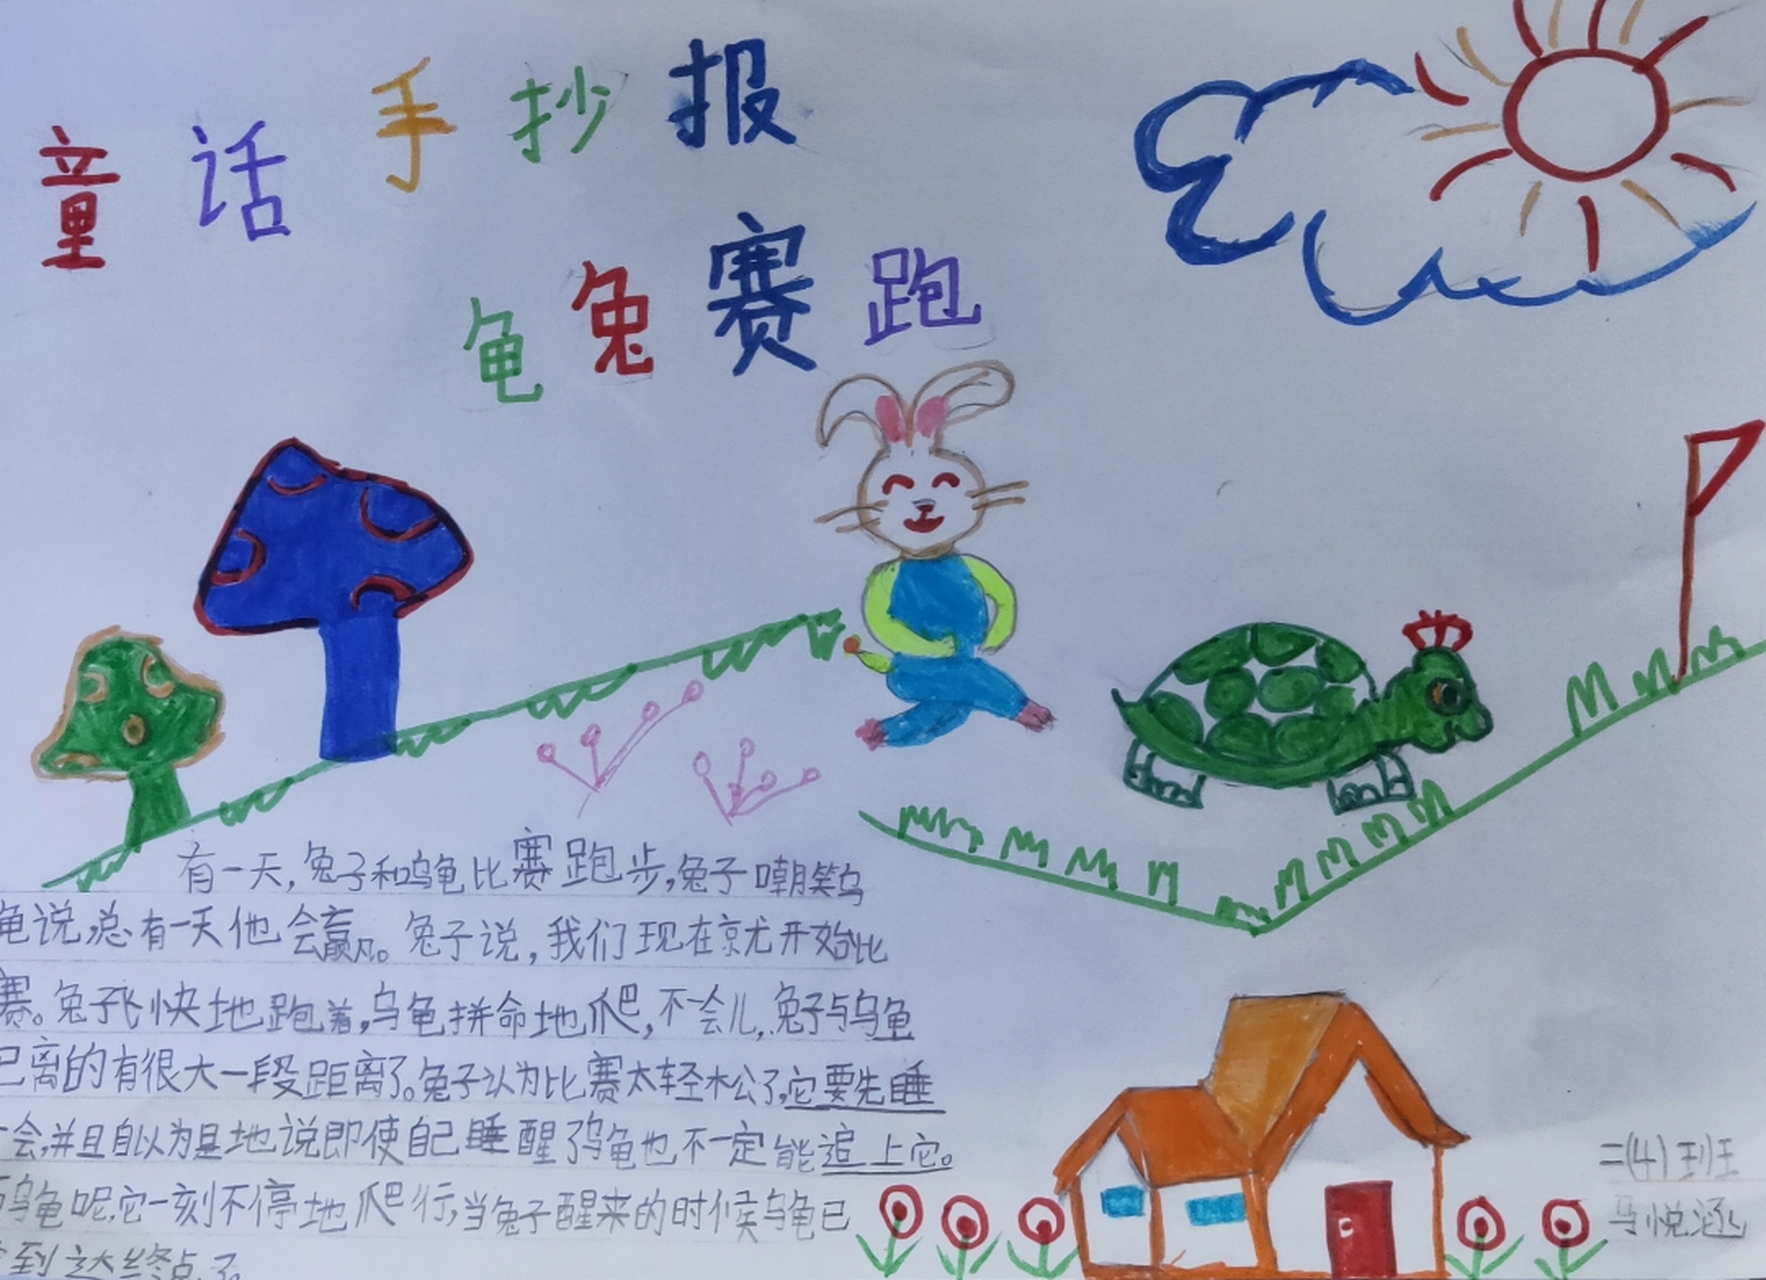 童话手抄报
龟兔赛跑
有一天,兔子和乌龟比赛跑步,兔子嘲笑乌
龟说,总有一天他会赢。兔子说,我们现在就开始比
赛。兔子飞快地跑着,乌龟拼命地爬,不一会儿,兔子与乌龟
已离的有很大一段距离了。兔子认为比赛太轻松了,它要先睡
一会,并且自以为是地说即使自己睡醒了乌龟也不一定能追上它。
乌龟呢,它一刻不停地爬行,当兔子醒来的时候乌龟已
到达终点了。
二(4)班
马悦涵